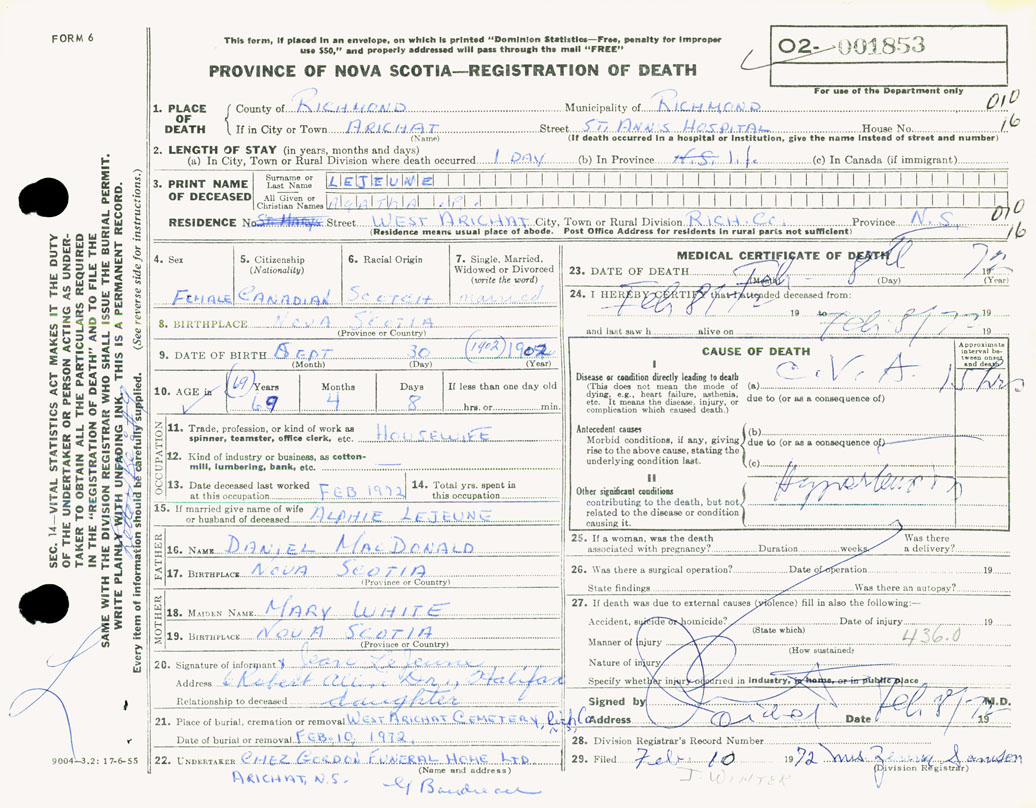 FORM 6
This form, if placed in an envelope, on which is printed "Dominion Statistics—Free, penalty for improper
use $50," and properly addressed will pass through the mail "FREE"
02- 001853
For use of the Department only
PROVINCE OF NOVA SCOTIA—REGISTRATION OF DEATH
1. PLACE OF DEATH
County of RICHMOND Municipality of RICHMOND 010
If in City or Town ARICHAT Street ST. ANN'S HOSPITAL House No. 16
(Name) (If death occurred in a hospital or institution, give the name instead of street and number)
2. LENGTH OF STAY (in years, months and days)
(a) In City, Town or Rural Division where death occurred 1 DAY (b) In Province N.S. life (c) In Canada (if immigrant)
3. PRINT NAME OF DECEASED
Surname or Last Name LEJEUNE
All Given or Christian Names AGATHA
RESIDENCE No. St Mary's Street WEST ARICHAT City, Town or Rural Division RICH. CO. Province N.S. 010
(Residence means usual place of abode. Post Office Address for residents in rural parts not sufficient) 16
4. Sex FEMALE
5. Citizenship (Nationality) CANADIAN
6. Racial Origin SCOTCH
7. Single, Married, Widowed or Divorced (write the word) married
8. BIRTHPLACE NOVA SCOTIA
(Province or Country)
9. DATE OF BIRTH SEPT 30 (1902) 1902
(Month) (Day) (Year)
10. AGE in (69) Years 69 Months 4 Days 8 If less than one day old hrs. or min.
OCCUPATION
11. Trade, profession, or kind of work as spinner, teamster, office clerk, etc. HOUSEWIFE
12. Kind of industry or business, as cotton-mill, lumbering, bank, etc. —
13. Date deceased last worked at this occupation FEB 1972
14. Total yrs. spent in this occupation
15. If married give name of wife or husband of deceased ALPHIE LEJEUNE
FATHER
16. NAME DANIEL MACDONALD
17. BIRTHPLACE NOVA SCOTIA
(Province or Country)
MOTHER
18. MAIDEN NAME MARY WHITE
19. BIRTHPLACE NOVA SCOTIA
(Province or Country)
20. Signature of informant x Jean LeJeune
Address 6 Robert Dr., Halifax
Relationship to deceased daughter
21. Place of burial, cremation or removal WEST ARICHAT CEMETERY, Rich Co N.S.
Date of burial or removal FEB. 10, 1972
22. UNDERTAKER CHEZ GORDON FUNERAL HOME LTD.
(Name and address)
ARICHAT, N.S. G Boudreau
MEDICAL CERTIFICATE OF DEATH
23. DATE OF DEATH Feb 8th 1972
(Month) (Day) (Year)
24. I HEREBY CERTIFY that I attended deceased from:
Feb 8/72 19 to Feb 8/72
and last saw h alive on 19
CAUSE OF DEATH
Approximate interval between onset and death
I
Disease or condition directly leading to death
(This does not mean the mode of dying, e.g., heart failure, asthenia, etc. It means the disease, injury, or complication which caused death.)
(a) C.V.A. 15 hrs
due to (or as a consequence of)
Antecedent causes
Morbid conditions, if any, giving rise to the above cause, stating the underlying condition last.
(b)
due to (or as a consequence of)
(c)
II
Other significant conditions
contributing to the death, but not related to the disease or condition causing it.
Hypertension
25. If a woman, was the death associated with pregnancy? Duration weeks. Was there a delivery?
26. Was there a surgical operation? Date of operation 19
State findings Was there an autopsy?
27. If death was due to external causes (violence) fill in also the following:—
Accident, suicide or homicide? Date of injury 19
(State which)
Manner of injury 436.0
(How sustained)
Nature of injury
Specify whether injury occurred in industry, in home, or in public place
Signed by M.D.
Address Date Feb 8/72 19
28. Division Registrar's Record Number
29. Filed Feb. 10 1972 Mrs Samson
(Division Registrar)
J. WINTER
SEC. 14—VITAL STATISTICS ACT MAKES IT THE DUTY
OF THE UNDERTAKER OR PERSON ACTING AS UNDER-
TAKER TO OBTAIN ALL THE PARTICULARS REQUIRED
IN THE "REGISTRATION OF DEATH" AND TO FILE THE
SAME WITH THE DIVISION REGISTRAR WHO SHALL ISSUE THE BURIAL PERMIT.
WRITE PLAINLY WITH UNFADING INK. THIS IS A PERMANENT RECORD.
Every item of information should be carefully supplied. (See reverse side for instructions.)
9004-3.2: 17-6-55